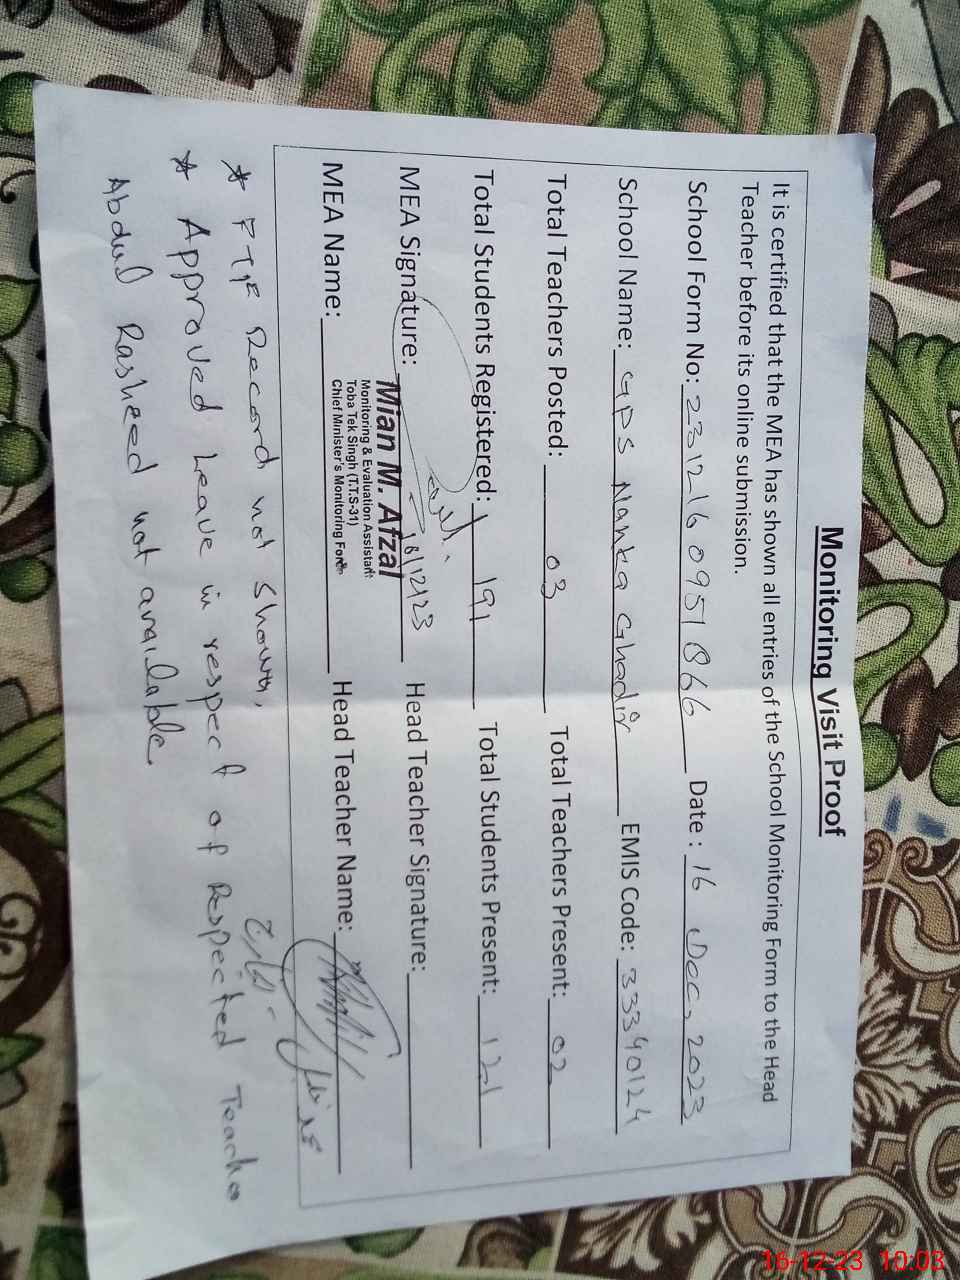 Monitoring Visit Proof
It is certified that the MEA has shown all entries of the School Monitoring Form to the Head
Teacher before its online submission.
School Form No: 2312160951866 Date : 16 Dec, 2023
School Name: GPS Nanka Ghadir EMIS Code: 33340124
Total Teachers Posted: 03 Total Teachers Present: 02
Total Students Registered: 191 Total Students Present: 121
MEA Signature: 16/12/23 Head Teacher Signature:
Mian M. Afzal
Monitoring & Evaluation Assistant
Toba Tek Singh (T.T.S-31)
Chief Minister's Monitoring Force
MEA Name: Head Teacher Name:
* FTF Record not shown,
* Approved Leave in respect of Respected Teacher
Abdul Rasheed not available
16-12-23 10:03